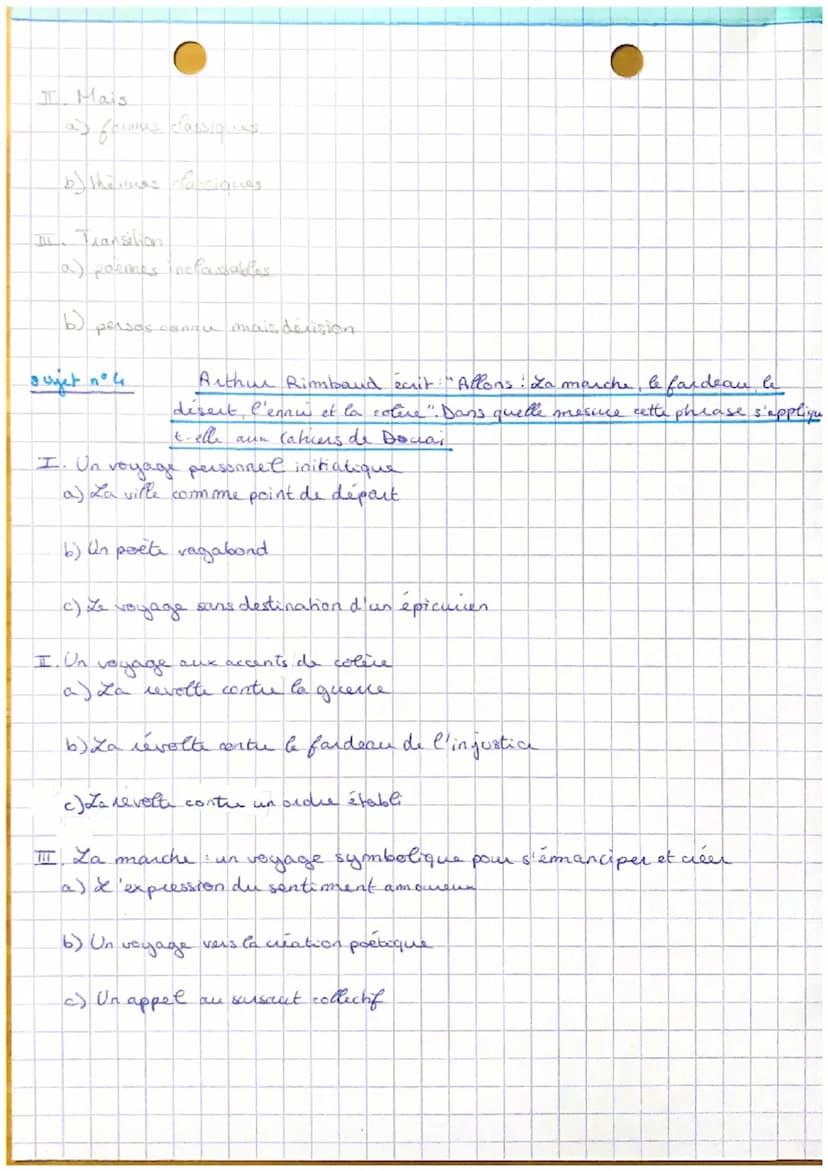 II. Mais
a) formes classiques
b) thèmes classiques
III. Transition
a) poèmes inclassables
b) persos connu mais dérision
sujet n°4 Arthur Rimbaud écrit : "Allons ! La marche, le fardeau, le
désert, l'ennui et la colère". Dans quelle mesure cette phrase s'applique
t-elle aux Cahiers de Douai
I. Un voyage personnel initiatique
a) La ville comme point de départ
b) Un poète vagabond
c) Le voyage sans destination d'un épicurien
II. Un voyage aux accents de colère
a) La révolte contre la guerre
b) La révolte contre le fardeau de l'injustice
c) La révolte contre un ordre établi
III. La marche : un voyage symbolique pour s'émanciper et créer
a) L'expression du sentiment amoureux
b) Un voyage vers la création poétique
c) Un appel au sursaut collectif